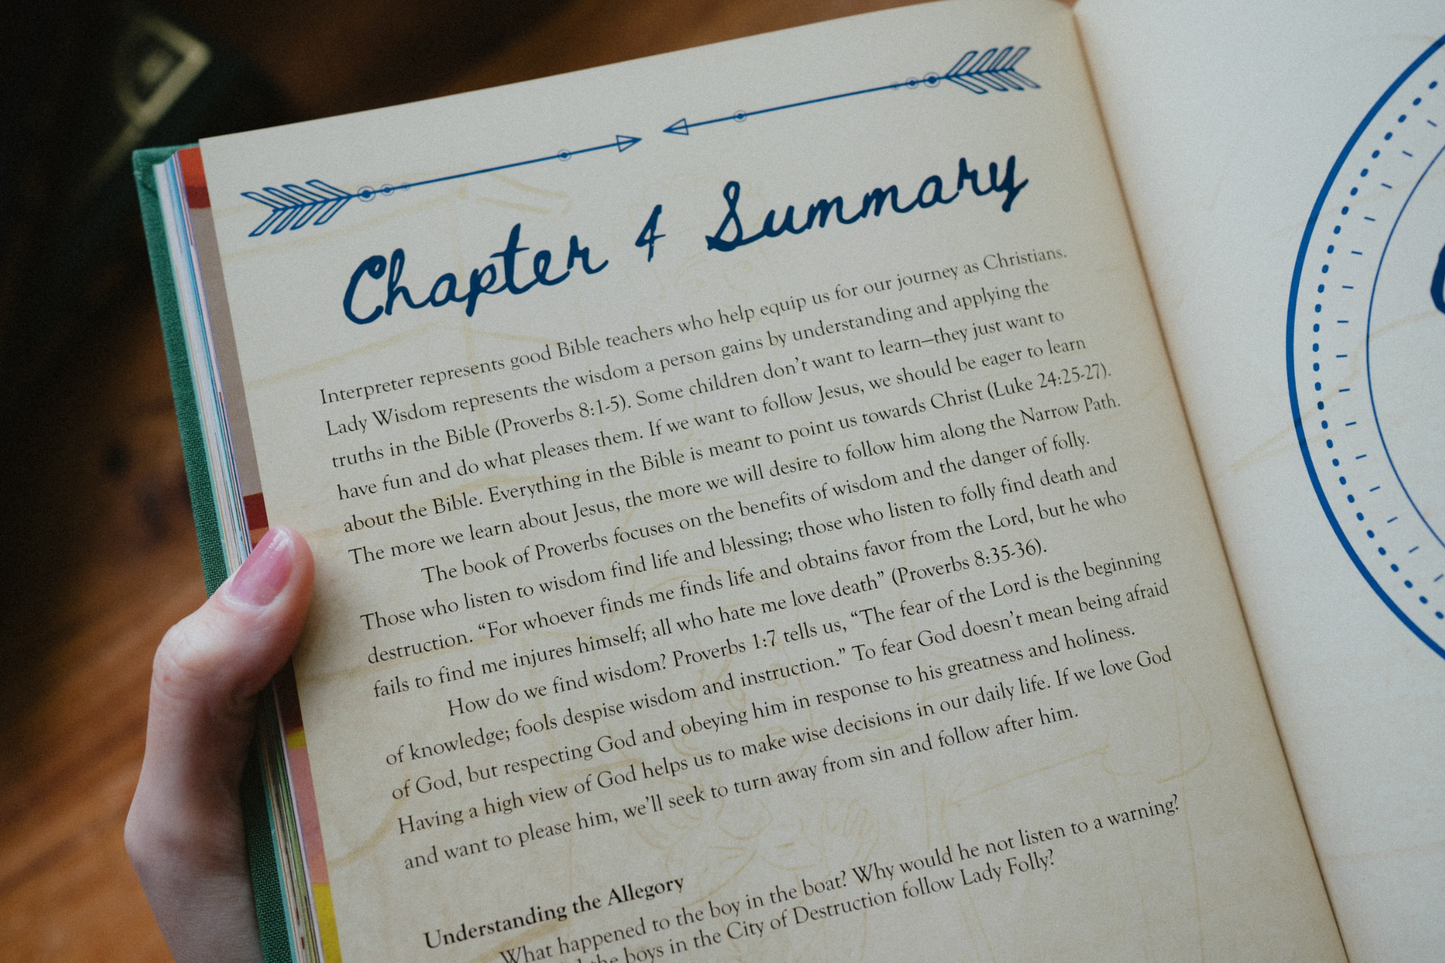 Chapter 4 Summary
Interpreter represents good Bible teachers who help equip us for our journey as Christians.
Lady Wisdom represents the wisdom a person gains by understanding and applying the
truths in the Bible (Proverbs 8:1-5). Some children don’t want to learn—they just want to
have fun and do what pleases them. If we want to follow Jesus, we should be eager to learn
about the Bible. Everything in the Bible is meant to point us towards Christ (Luke 24:25-27).
The more we learn about Jesus, the more we will desire to follow him along the Narrow Path.
The book of Proverbs focuses on the benefits of wisdom and the danger of folly.
Those who listen to wisdom find life and blessing; those who listen to folly find death and
destruction. “For whoever finds me finds life and obtains favor from the Lord, but he who
fails to find me injures himself; all who hate me love death” (Proverbs 8:35-36).
How do we find wisdom? Proverbs 1:7 tells us, “The fear of the Lord is the beginning
of knowledge; fools despise wisdom and instruction.” To fear God doesn’t mean being afraid
of God, but respecting God and obeying him in response to his greatness and holiness.
Having a high view of God helps us to make wise decisions in our daily life. If we love God
and want to please him, we’ll seek to turn away from sin and follow after him.
Understanding the Allegory
What happened to the boy in the boat? Why would he not listen to a warning?
the boys in the City of Destruction follow Lady Folly?